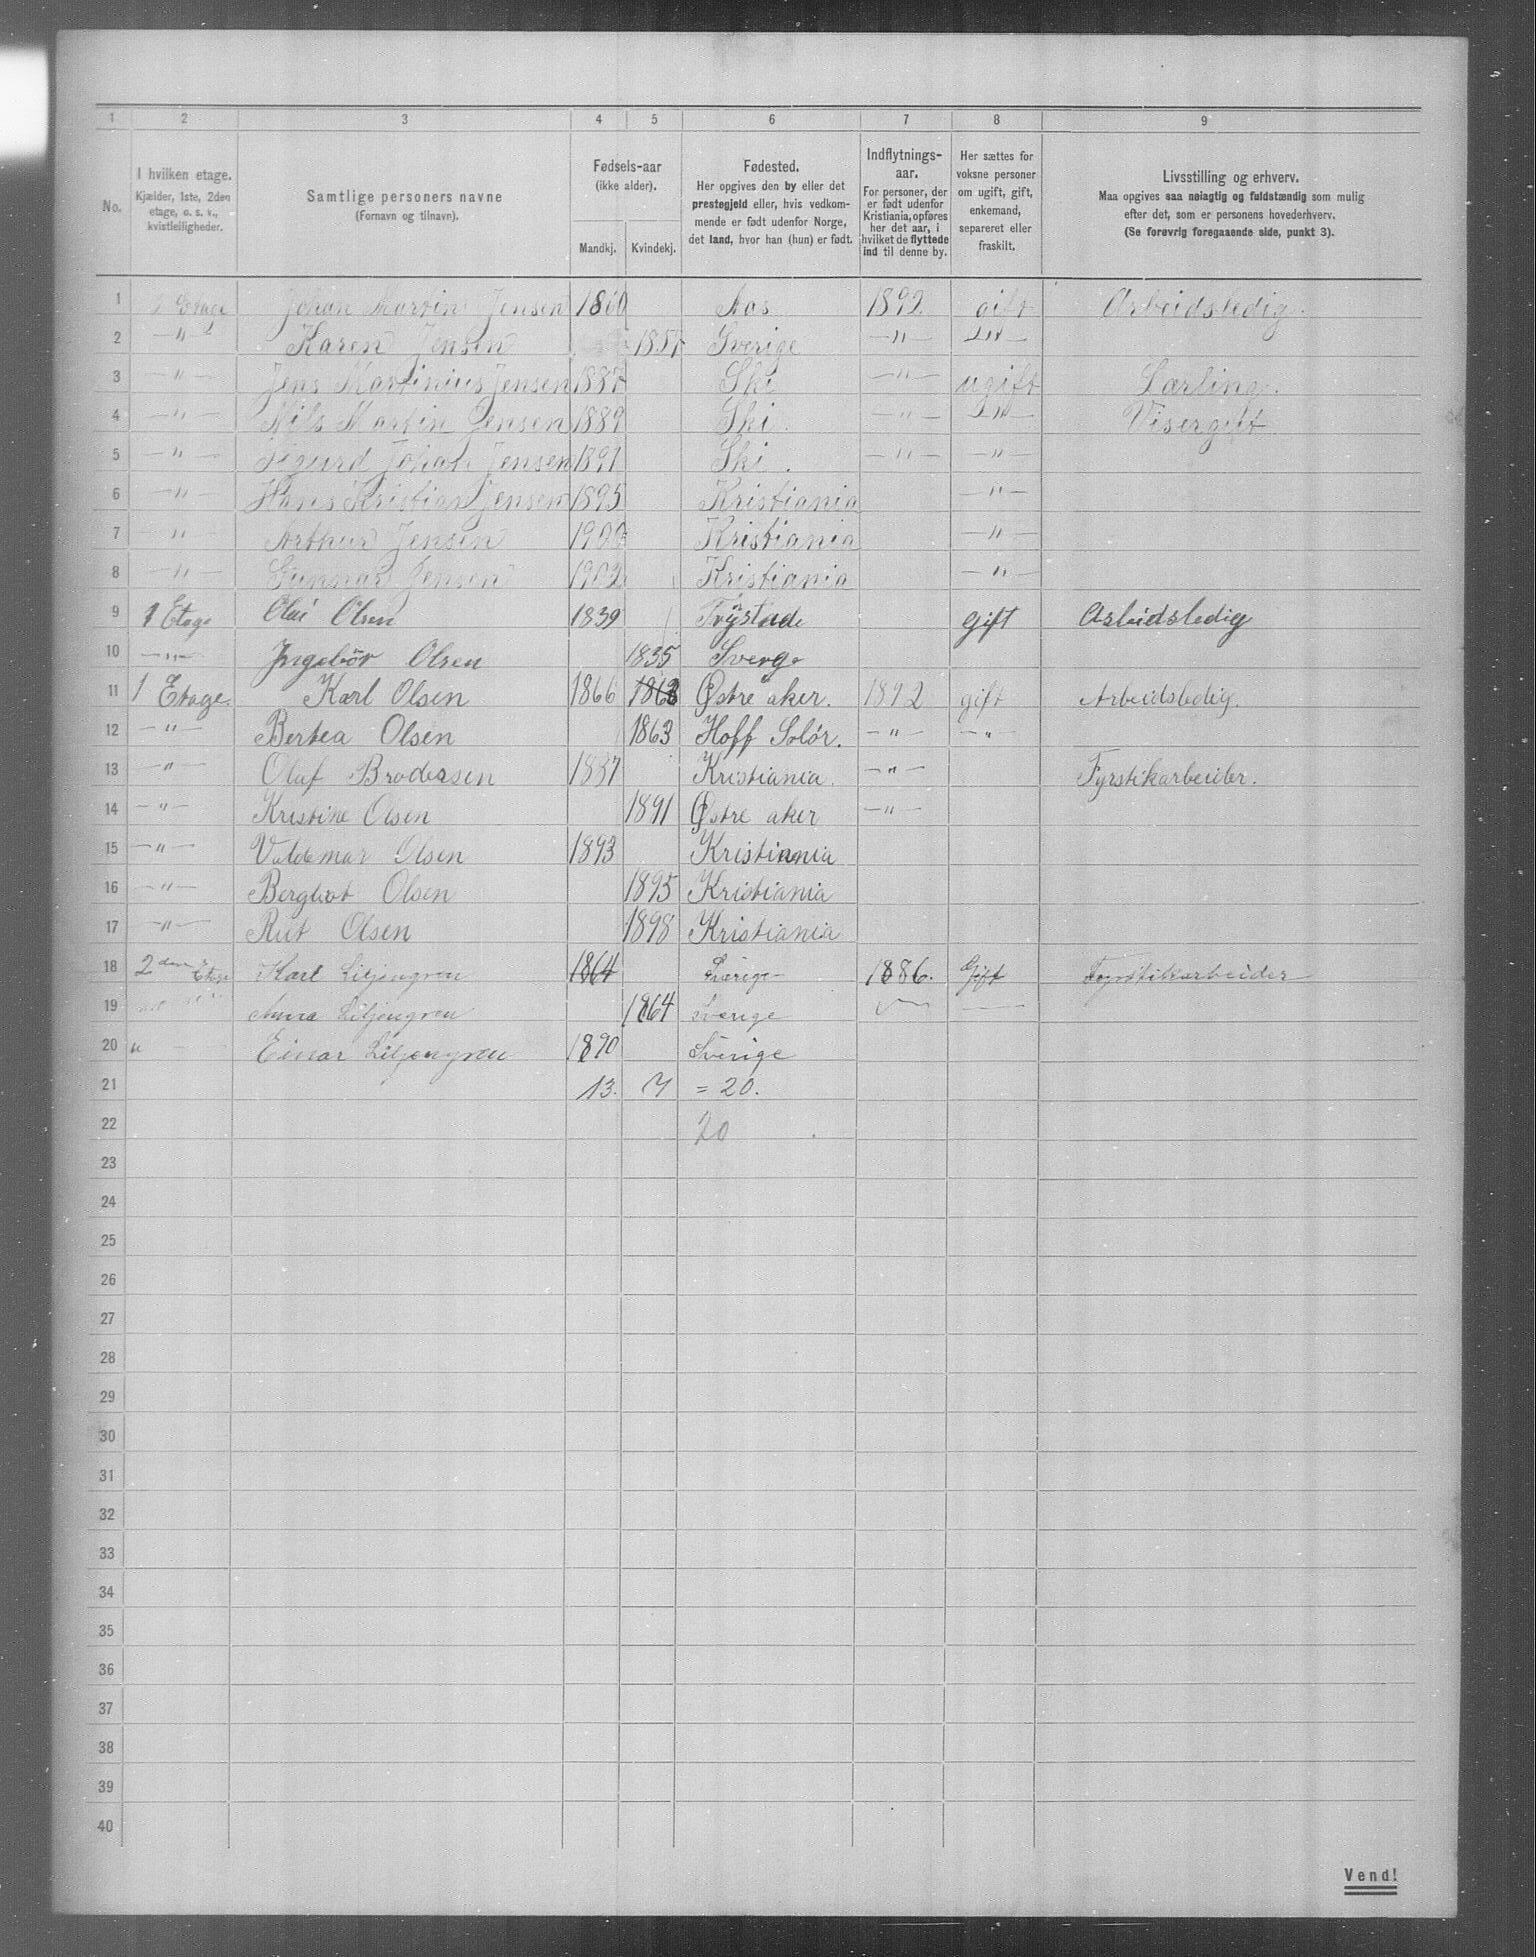 1 2 3 4 5 6 7 8 9
No.
I hvilken etage.
Kjælder, 1ste, 2den
etage, o. s. v.,
kvistleiligheder.
Samtlige personers navne
(Fornavn og tilnavn).
Fødsels-aar
(ikke alder).
Mandkj. Kvindekj.
Fødested.
Her opgives den by eller det
prestegjeld eller, hvis vedkom-
mende er født udenfor Norge,
det land, hvor han (hun) er født.
Indflytnings-
aar.
For personer, der
er født udenfor
Kristiania, opføres
her det aar, i
hvilket de flyttede
ind til denne by.
Her sættes for
voksne personer
om ugift, gift,
enkemand,
separeret eller
fraskilt.
Livsstilling og erhverv.
Maa opgives saa nøiagtig og fuldstændig som mulig
efter det, som er personens hovederhverv.
(Se forøvrig foregaaende side, punkt 3).
1 Etage Johan Martin Jensen 1860 Aas 1892 gift Arbeidsledig.
2 —"— Karen Jensen 1857 Sverige —"— —"—
3 —"— Jens Martinius Jensen 1887 Ski —"— ugift Lærling.
4 —"— Nils Martin Jensen 1889 Ski. —"— —"— Visergut
5 —"— Sigurd Johan Jensen 1891 Ski. —"— —"—
6 —"— Hans Kristian Jensen 1895 Kristiania —"—
7 —"— Arthur Jensen 1900 Kristiania —"—
8 —"— Gunnar Jensen 1902 Kristiania —"—
9 1 Etage Olai Olsen 1839 gift Arbeidsledig
10 —"— Ingebör Olsen 1835 Sverge
11 1 Etage. Karl Olsen 1866 1863 Østre aker. 1892 gift Arbeidsledig.
12 —"— Bertea Olsen 1863 Hoff Solør. —"— —"—
13 —"— Oluf Brodersen 1887 Kristiania. —"— Fyrstikarbeider.
14 —"— Kristine Olsen 1891 Østre aker —"—
15 —"— Valdemar Olsen 1893 Kristiania
16 —"— Bergliot Olsen 1895 Kristiania
17 —"— Rut Olsen 1898 Kristiania
18 2den Etage Karl Liljengren 1864 Sverige 1886. Gift Fyrstikarbeider
19 Anna Liljengren 1864 Sverige —
20 " — Einar Liljengren 1890 Sverige
21 13. 7 = 20.
22 20
23
24
25
26
27
28
29
30
31
32
33
34
35
36
37
38
39
40
Vend!